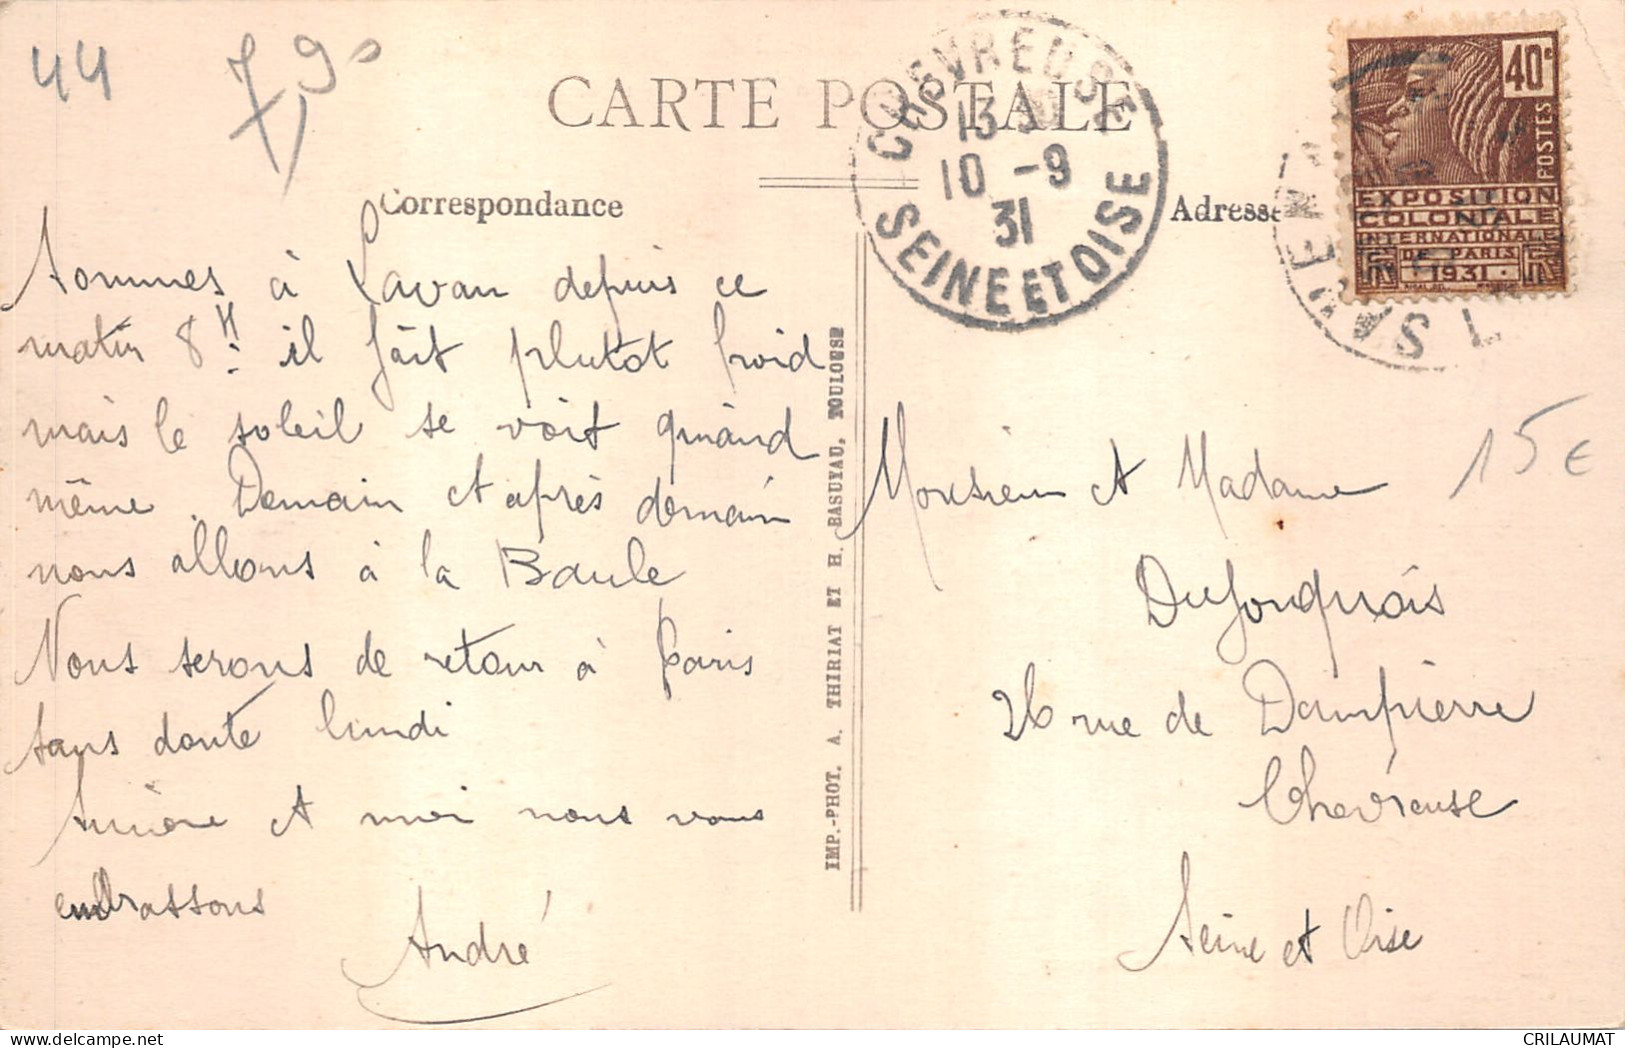 44
79
CARTE POSTALE
Correspondance
Adresse
CHEVREUSE
13
10 -9
31
SEINE ET OISE
40c
POSTES
EXPOSITION
COLONIALE
INTERNATIONALE
DE PARIS
1931
Sommes à Savan depuis ce
matin 8H. il fait plutot froid
mais le soleil se voit quand
même. Demain et après demain
nous allons à la Baule
Nous serons de retour à Paris
sans doute lundi
et moi nous vous
embrassons
André
IMP.-PHOT. A. THIRIAT ET H. BASUYAU, TOULOUSE
15€
Monsieur et Madame
Dufouquois
26 rue de Dampierre
Chevreuse
Seine et Oise
CRILAUMAT